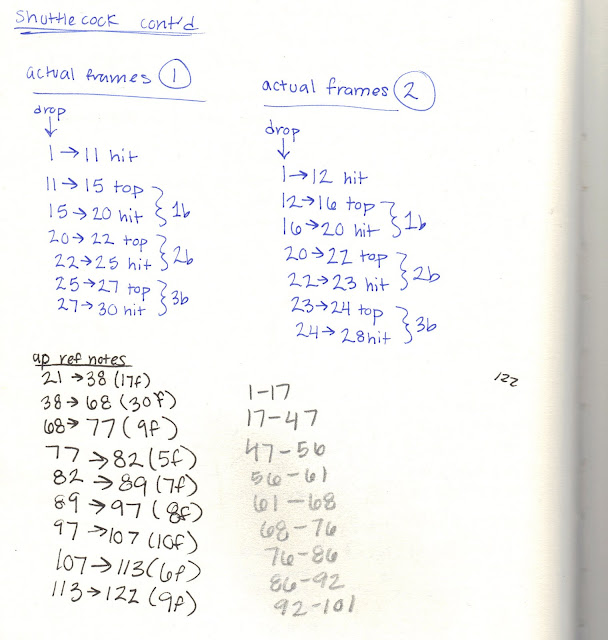 Shuttlecock cont'd
actual frames 1
drop
↓
1→11 hit
11→15 top
15→20 hit
1b
20→22 top
22→25 hit
2b
25→27 top
27→30 hit
3b
actual frames 2
drop
↓
1→12 hit
12→16 top
16→20 hit
1b
20→22 top
22→23 hit
2b
23→24 top
24→28 hit
3b
ap ref notes
21→38 (17f)
38→68 (30f)
68→77 (9f)
77→82 (5f)
82→89 (7f)
89→97 (8f)
97→107 (10f)
107→113 (6f)
113→122 (9f)
1-17
17-47
47-56
56-61
61-68
68-76
76-86
86-92
92-101
122